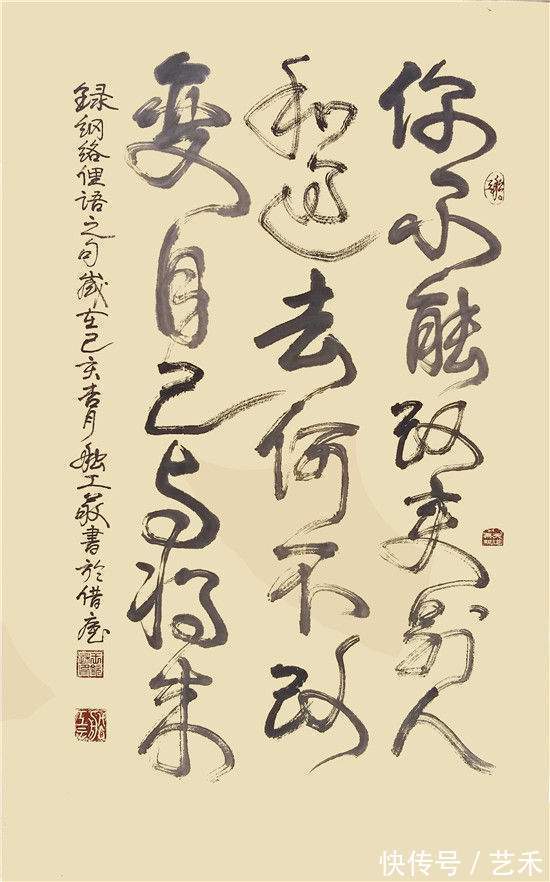 你不能改变别人
和过去何不改
变自己与将来
録網络俚语之句歲在己亥杏月融工敬書於借庵
快传号／艺禾